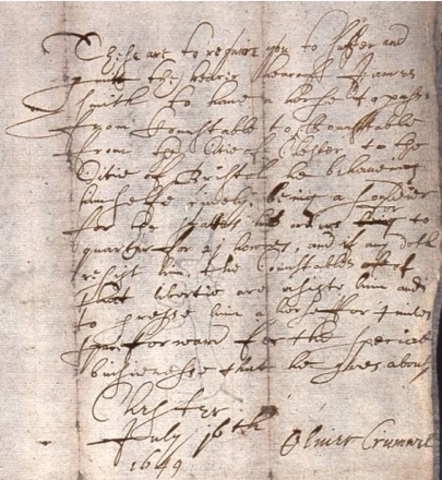 These are to require you to suffer and
the bearer hearof James
Smith to have a horse to
from Constable to Counstable
from the Citie of Chester to the
Citie of Bristol he behaveing
himselfe cively being a Souldier
for the states to
quarter for 24 howers, and if any doth
resist him, the Counstables of
that libertie are asiste him and
to presse him a horse for 4 miles
forward for the special
buisienesse that he goes about
Chester
July 16th
1649
Oliver Crumwel